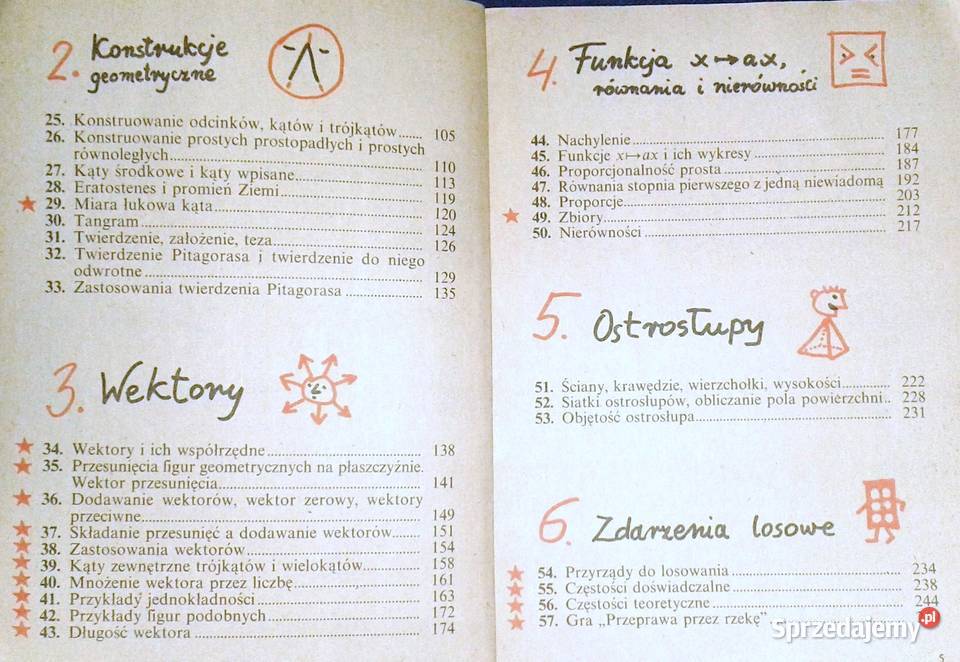 2. Konstrukcje
geometryczne
25. Konstruowanie odcinków, kątów i trójkątów...... 105
26. Konstruowanie prostych prostopadłych i prostych
równoległych........ 110
27. Kąty środkowe i kąty wpisane........ 113
28. Eratostenes i promień Ziemi........ 119
★ 29. Miara łukowa kąta........ 120
30. Tangram........ 124
31. Twierdzenie, założenie, teza........ 126
32. Twierdzenie Pitagorasa i twierdzenie do niego
odwrotne........ 129
33. Zastosowania twierdzenia Pitagorasa........ 135
3. Wektory
★ 34. Wektory i ich współrzędne........ 138
★ 35. Przesunięcia figur geometrycznych na płaszczyźnie.
Wektor przesunięcia........ 141
★ 36. Dodawanie wektorów, wektor zerowy, wektory
przeciwne........ 149
★ 37. Składanie przesunięć a dodawanie wektorów........ 151
★ 38. Zastosowania wektorów........ 154
★ 39. Kąty zewnętrzne trójkątów i wielokątów........ 158
★ 40. Mnożenie wektora przez liczbę........ 161
★ 41. Przykłady jednokładności........ 163
★ 42. Przykłady figur podobnych........ 172
★ 43. Długość wektora........ 174
4. Funkcja x↦ax,
równania i nierówności
44. Nachylenie........ 177
45. Funkcje x↦ax i ich wykresy........ 184
46. Proporcjonalność prosta........ 187
47. Równania stopnia pierwszego z jedną niewiadomą 192
48. Proporcje........ 203
★ 49. Zbiory........ 212
50. Nierówności........ 217
5. Ostrosłupy
51. Ściany, krawędzie, wierzchołki, wysokości........ 222
52. Siatki ostrosłupów, obliczanie pola powierzchni.. 228
53. Objętość ostrosłupa........ 231
6. Zdarzenia losowe
★ 54. Przyrządy do losowania........ 234
★ 55. Częstości doświadczalne........ 238
★ 56. Częstości teoretyczne........ 244
★ 57. Gra „Przeprawa przez rzekę"........
Sprzedajemy.pl
5